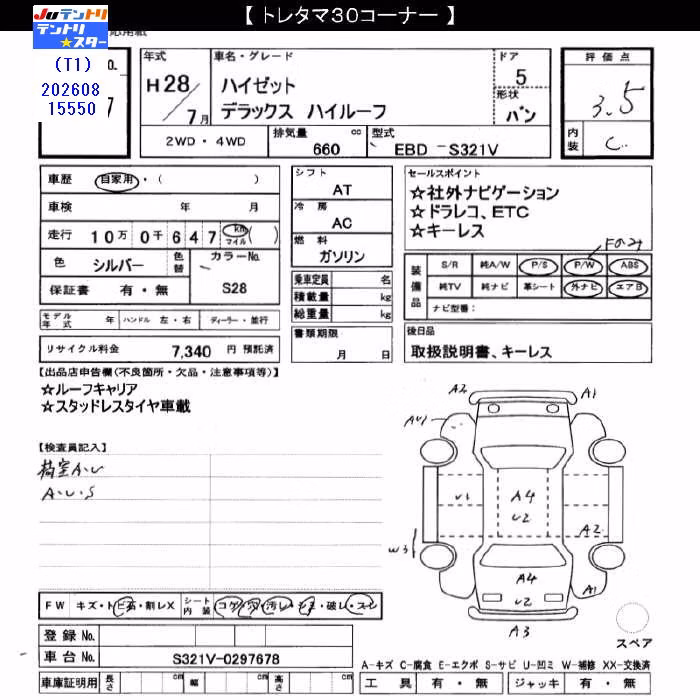 【 トレタマ30コーナー 】
JUテントリ
テントリ★スター
(T1)
202608
15550
年式
H28/7月
車名・グレード
ハイゼット
デラックス ハイルーフ
ドア
5
形状
バン
評価点
3.5
内装
C
2WD・4WD
排気量 cc
660
型式
EBD -S321V
車歴 自家用・( )
車検 年 月
走行 10万 0千 6 4 7 km マイル ( )
色 シルバー 色替 カラーNo.
S28
保証書 有・無
モデル年式 年 ハンドル 左・右 ディーラー・並行
リサイクル料金 7,340 円 預託済
シフト
AT
冷房
AC
燃料
ガソリン
乗車定員 名
積載量 kg
総重量 kg
書類期限
月 日
セールスポイント
☆社外ナビゲーション
☆ドラレコ、ETC
☆キーレス
装備品
S/R 純A/W P/S P/W ABS
純TV 純ナビ 革シート 外ナビ エアB
ナビ型番：
後日品
取扱説明書、キーレス
【出品店申告欄(不良箇所・欠品・注意事項等)】
☆ルーフキャリア
☆スタッドレスタイヤ車載
【検査員記入】
A・U
A・U・S
A2
A1
AU1
U1
A4
U2
A2
W3
A4
U2
A1
A3
スペア
FW キズ・トビ石・割レX シート内装 コゲ・穴・汚レ・シミ・破レ・スレ
登録 No.
車台 No. S321V-0297678
車庫証明用 長さ cm 幅 cm 高さ cm
A-キズ C-腐食 E-エクボ S-サビ U-凹ミ W-補修 XX-交換済
工具 有・無 ジャッキ 有・無